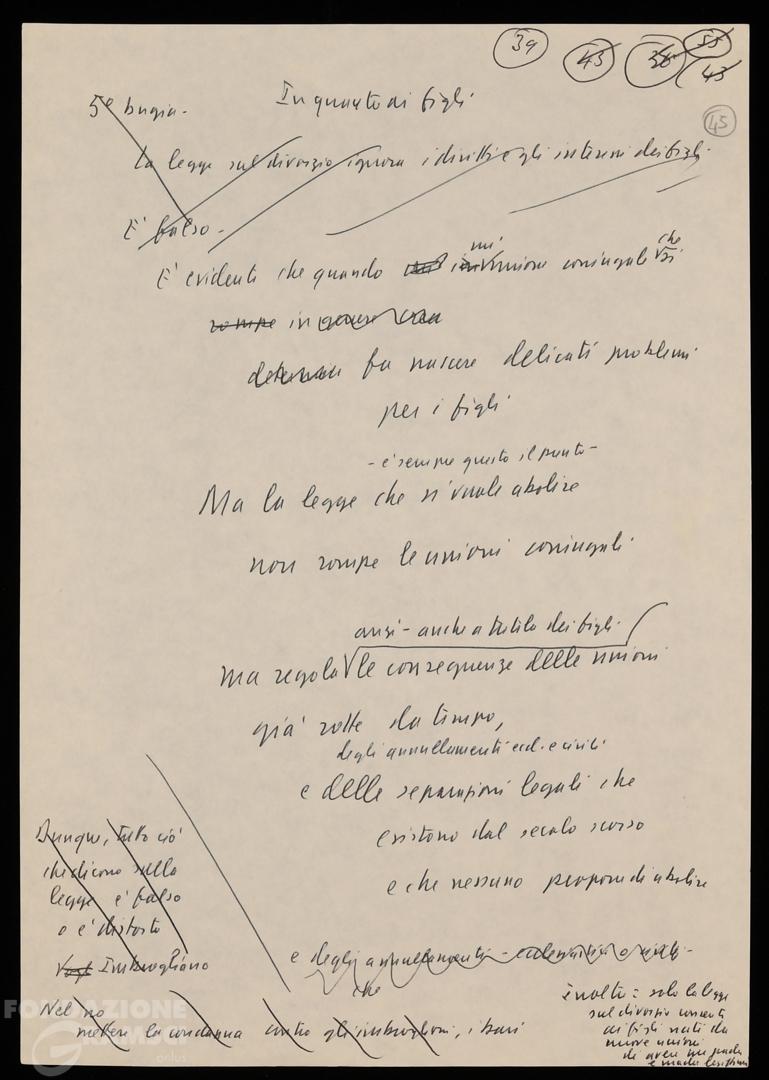 39 43 36 55
43
45
5ª bugia - In quanto ai figli
La legge sul divorzio ignora i diritti e gli interessi dei figli.
E' falso -
un' che
E' evidente che quando unione coniugale si
rompe in
fa nascere delicati problemi
per i figli
- è sempre questo il punto -
Ma la legge che si vuole abolire
non rompe le unioni coniugali
anzi - anche a tutela dei figli -
ma regola le conseguenze delle unioni
già rotte da tempo,
degli annullamenti eccl. e civili
e delle separazioni legali che
esistono dal secolo scorso
e che nessuno propone di abolire
e degli annullamenti - ecclesiastici o civili -
che
Dunque, tutto ciò
che dicono sulla
legge è falso
o è distorto
Imbrogliano
Nel no
mettere la condanna contro gli imbroglioni, i bari
inoltre: solo la legge
sul divorzio consente
ai figli nati da
nuove unioni
di avere un padre
e madre legittimi
FONDAZIONE
GRAMSCI
onlus